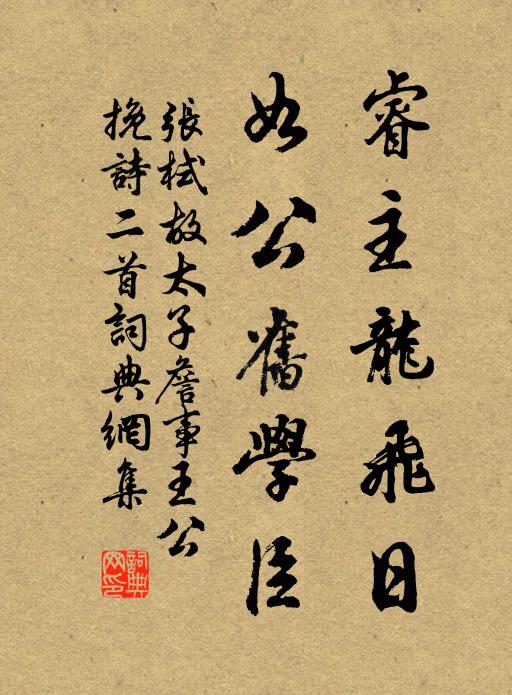 睿主龍飛日
如公舊學臣
張栻故太子詹事王公
挽詩二首詞典網集
詞典
网印